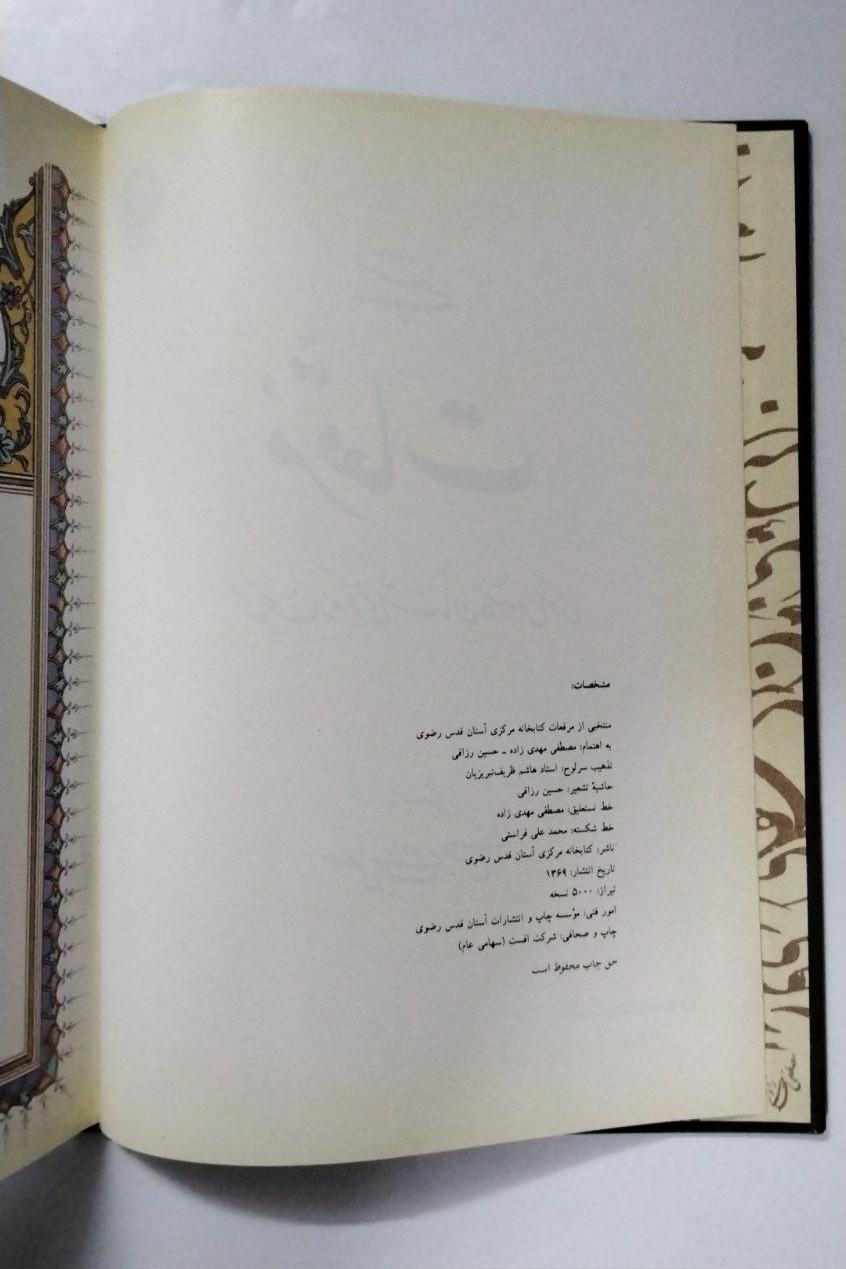 مشخصات:
منتخبی از مرقعات کتابخانه مرکزی آستان قدس رضوی
به اهتمام: مصطفی مهدی زاده ـ حسین رزاقی
تذهیب سرلوح: استاد هاشم ظریف‌تبریزیان
حاشیهٔ تشعیر: حسین رزاقی
خط نستعلیق: مصطفی مهدی زاده
خط شکسته: محمد علی فراستی
ناشر: کتابخانه مرکزی آستان قدس رضوی
تاریخ انتشار: ۱۳۶۹
تیراژ: ۵۰۰۰ نسخه
امور فنی: مؤسسه چاپ و انتشارات آستان قدس رضوی
چاپ و صحافی: شرکت افست (سهامی عام)
حق چاپ محفوظ است